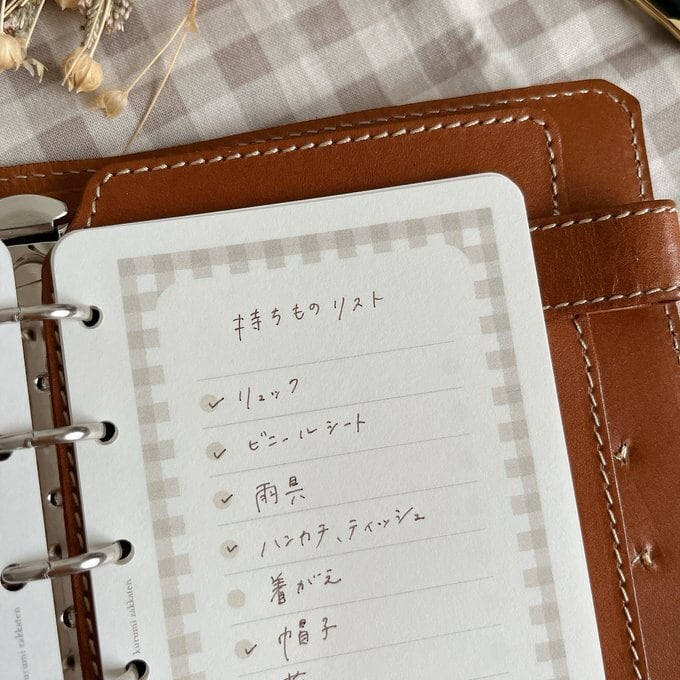 持ちものリスト
リュック
ビニールシート
雨具
ハンカチ、ティッシュ
着がえ
帽子
kurumi zakkaten
kurumi zakkaten